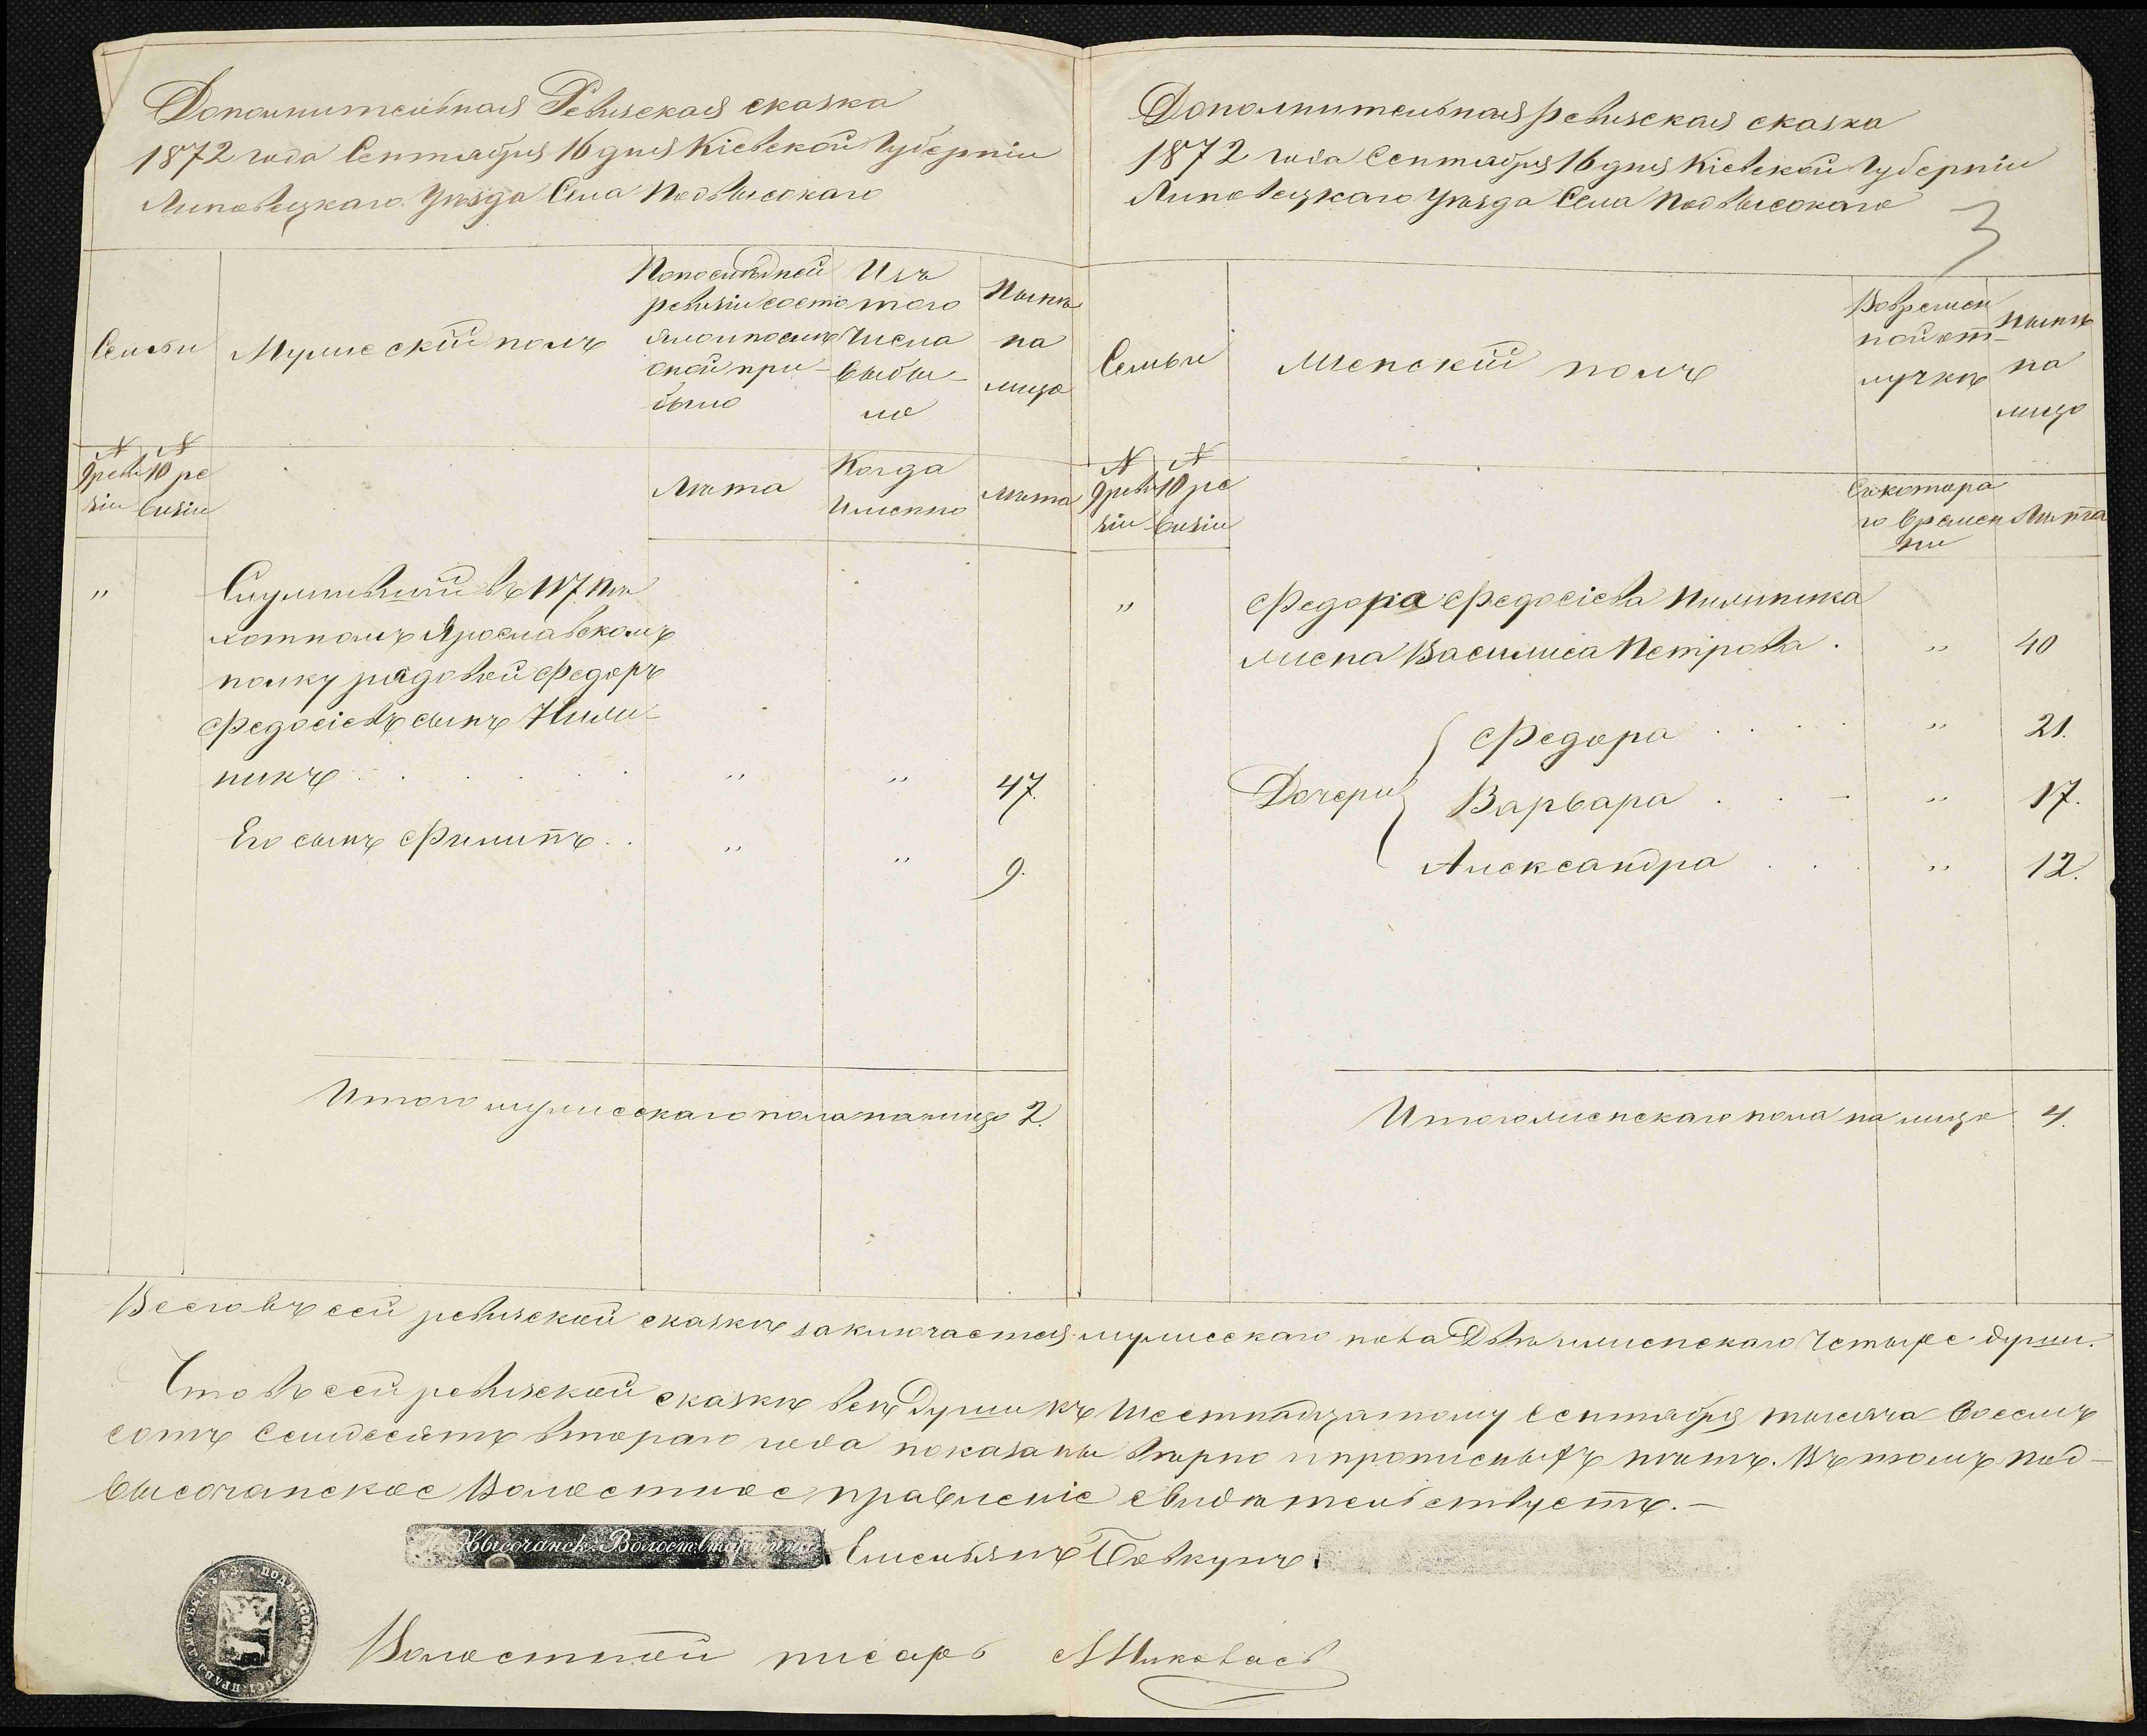 Дополнительная Ревизская сказка
1872 года Сентября 16 дня Кіевской Губерніи
Липовецкаго Уѣзда Села Подвысокаго
Семьи
Мужескій полъ
Попослѣдней
ревизіи состо
яло и послѣ
оной при-
было
Изъ
того
Числа
выбы-
ло
Нынѣ
на
лицо
№
9 реви
зіи
№
10 ре
визіи
Лѣта
Когда
Именно
Лѣта
"
Служившій въ 117 Пѣ
хотномъ Ярославскомъ
полку рядовой Федоръ
Федосіевъ сынъ Пили-
пикъ . . . . . " " 47.
Его сынъ Филипъ . . " " 9.
Итого мужескаго пола налицо 2.
Дополнительная ревизская сказка
1872 года Сентября 16 дня Кіевской Губерніи
Липовецкаго Уѣзда Села Подвысокаго
3
Семьи
Женскій полъ
Вовремен
ной от-
лучкѣ
Нынѣ
на
лицо
№
9 реви
зіи
№
10 ре
визіи
Съкотора
го времен
ни
Лѣта
"
Федора Федосіева Пилипика
жена Василиса Петрова . " 40
Федора . . . . " 21.
Дочери Варвара . . - " 17.
Александра . . . " 12.
Итого женскаго пола на лицо 4.
Всего въ сей ревизской сказкѣ заключается мужескаго пола Двѣ и женскаго Четыре души.
Что въ сей ревизской сказкѣ всѣ Души къ Шестнадцатому Сентября тысяча восемь
сотъ Семдесятъ втораго года показаны вѣрно и прописныхъ нѣтъ. Въ томъ Под-
высочанское Волостное правленіе свидѣтельствуетъ. —
Подвысочанск. Волост. Старшина Емельянъ Бовкунъ
Волостной писарь